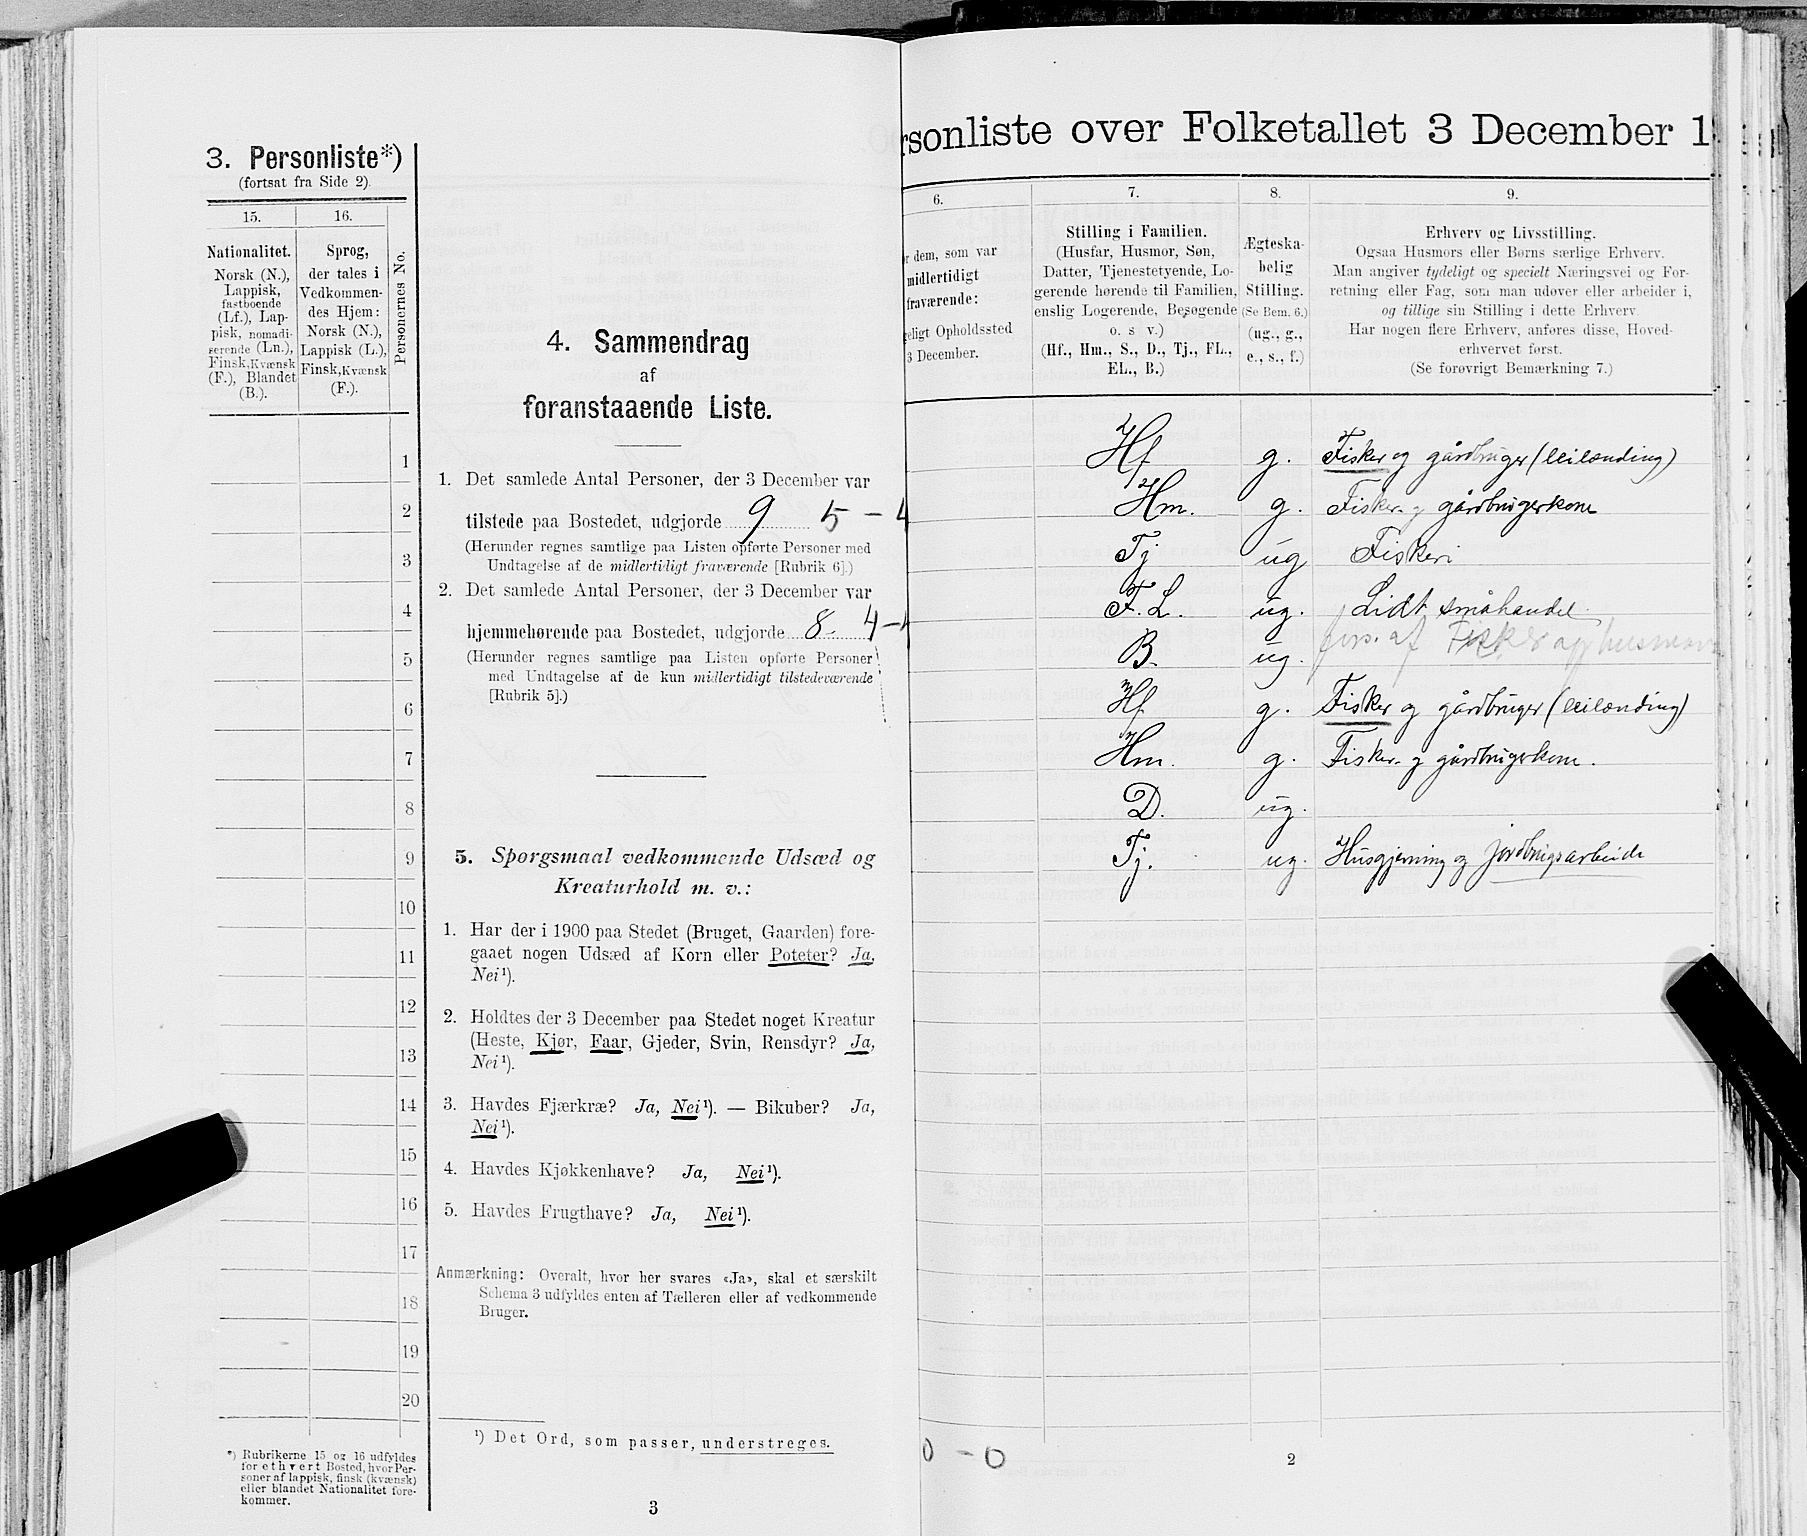 3. Personliste*)
(fortsat fra Side 2).
15.
16.
Nationalitet.
Norsk (N.),
Lappisk,
fastboende
(Lf.), Lap-
pisk, nomadi-
serende (Ln.),
Finsk, Kvænsk
(F.), Blandet
(B.).
Sprog,
der tales i
Vedkommen-
des Hjem:
Norsk (N.),
Lappisk (L.),
Finsk, Kvænsk
(F.).
Personernes No.
1
2
3
4
5
6
7
8
9
10
11
12
13
14
15
16
17
18
19
20
*) Rubrikerne 15 og 16 udfyldes
for ethvert Bosted, hvor Per-
soner af lappisk, finsk (kvænsk)
eller blandet Nationalitet fore-
kommer.
4. Sammendrag
af
foranstaaende Liste.
1. Det samlede Antal Personer, der 3 December var
tilstede paa Bostedet, udgjorde 9 5 - 4
(Herunder regnes samtlige paa Listen opførte Personer med
Undtagelse af de midlertidigt fraværende [Rubrik 6].)
2. Det samlede Antal Personer, der 3 December var
hjemmehørende paa Bostedet, udgjorde 8. 4 -
(Herunder regnes samtlige paa Listen opførte Personer
med Undtagelse af de kun midlertidigt tilstedeværende
[Rubrik 5].)
5. Spørgsmaal vedkommende Udsæd og
Kreaturhold m. v.:
1. Har der i 1900 paa Stedet (Bruget, Gaarden) fore-
gaaet nogen Udsæd af Korn eller Poteter? Ja,
Nei¹).
2. Holdtes der 3 December paa Stedet noget Kreatur
(Heste, Kjør, Faar, Gjeder, Svin, Rensdyr? Ja,
Nei¹).
3. Havdes Fjærkræ? Ja, Nei¹). — Bikuber? Ja,
Nei¹).
4. Havdes Kjøkkenhave? Ja, Nei¹).
5. Havdes Frugthave? Ja, Nei¹).
Anmærkning: Overalt, hvor her svares «Ja», skal et særskilt
Schema 3 udfyldes enten af Tælleren eller af vedkommende
Bruger.
¹) Det Ord, som passer, understreges.
3
rsonliste over Folketallet 3 December 1
6.
7.
8.
9.
r dem, som var
midlertidigt
fraværende:
eligt Opholdssted
3 December.
Stilling i Familien.
(Husfar, Husmor, Søn,
Datter, Tjenestetyende, Lo-
gerende hørende til Familien,
enslig Logerende, Besøgende
o. s v.)
(Hf., Hm., S., D., Tj., FL.,
EL., B.)
Ægteska-
belig
Stilling.
(Se Bem. 6.)
(ug., g.,
e., s., f.)
Erhverv og Livsstilling.
Ogsaa Husmors eller Børns særlige Erhverv.
Man angiver tydeligt og specielt Næringsvei og For-
retning eller Fag, som man udøver eller arbeider i,
og tillige sin Stilling i dette Erhverv.
Har nogen flere Erhverv, anføres disse, Hoved-
erhvervet først.
(Se forøvrigt Bemærkning 7.)
Hf g. Fisker og gårdbruger (leilænding)
Hm. g. Fisker- og gårdbrugerkone
Tj ug Fiskeri
F. L. ug. Lidt småhandel.
B. ug. fors. af Fisker og husmand
Hf g. Fisker og gårdbruger (leilænding)
Hm. g. Fisker- og gårdbrugerkone.
D. ug.
Tj. ug. Husgjerning og jordbrugsarbeide
0 - 0
2